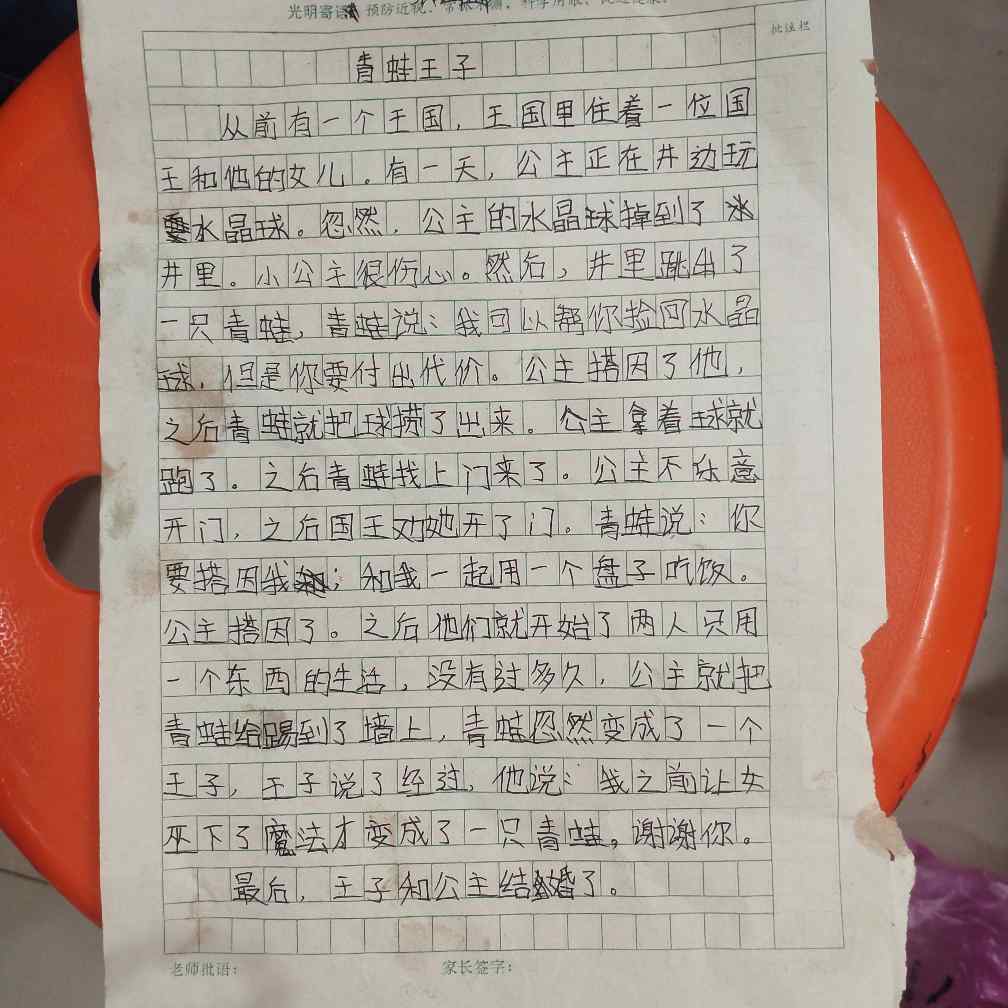 光明寄语 预防近视
批注栏
青蛙王子
从前有一个王国，王国里住着一位国
王和他的女儿。有一天，公主正在井边玩
水晶球。忽然，公主的水晶球掉到了水
井里。小公主很伤心。然后，井里跳出了
一只青蛙，青蛙说：我可以帮你捡回水晶
球，但是你要付出代价。公主搭因了他，
之后青蛙就把球捞了出来。公主拿着球就
跑了。之后青蛙找上门来了。公主不乐意
开门，之后国王劝她开了门。青蛙说：你
要搭因我；和我一起用一个盘子吃饭。
公主搭因了。之后他们就开始了两人只用
一个东西的生活，没有过多久，公主就把
青蛙给踢到了墙上，青蛙忽然变成了一个
王子，王子说了经过，他说：我之前让女
巫下了魔法才变成了一只青蛙。谢谢你。
最后，王子和公主结婚了。
老师批语： 家长签字：